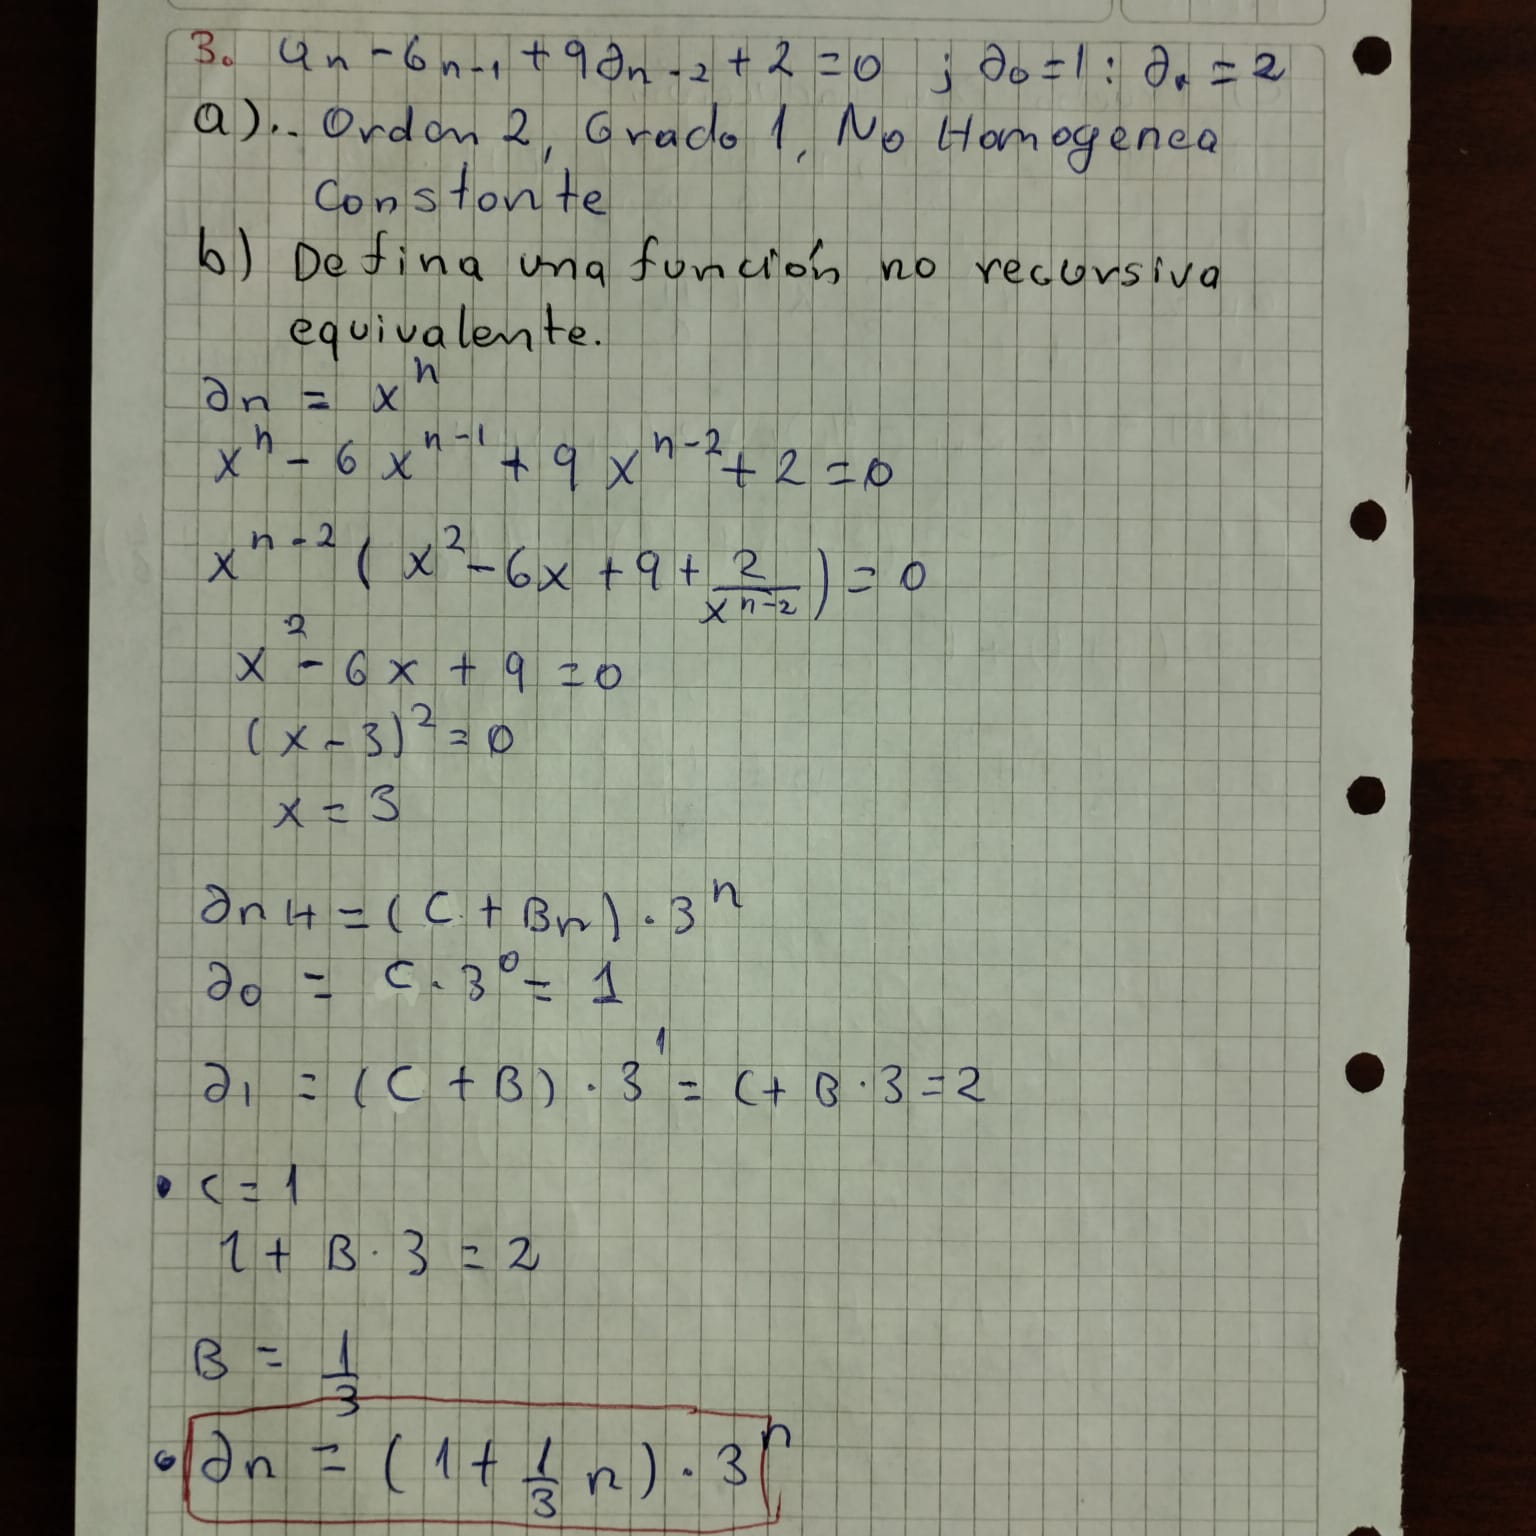 3. an - 6n-1 + 9an-2 + 2 = 0 ; a0 = 1 : a1 = 2
a).. Orden 2, Grado 1, No Homogenea
Constante
b) Defina una función no recursiva
equivalente.
an = x^n
x^n - 6x^n-1 + 9x^n-2 + 2 = 0
x^n-2 ( x^2 - 6x + 9 + 2/x^n-2 ) = 0
x^2 - 6x + 9 = 0
(x - 3)^2 = 0
x = 3
anH = (C + Bn) . 3^n
a0 = C . 3^0 = 1
a1 = (C + B) . 3^1 = C + B . 3 = 2
• C = 1
1 + B . 3 = 2
B = 1/3
• an = (1 + 1/3 n) . 3^n